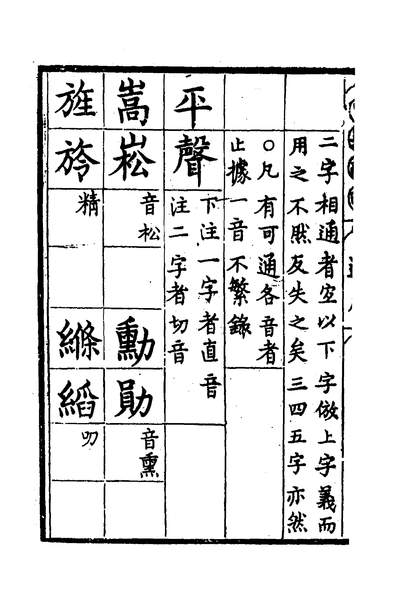 二字相通者宜以下字倣上字義而
用之不然反失之矣三四五字亦然
〇凡有可通各音者
止據一音不繁錄
平聲
下注一字者直音
注二字者切音
嵩崧
音松
勳勛
音熏
旌旍
精
縧縚
叨